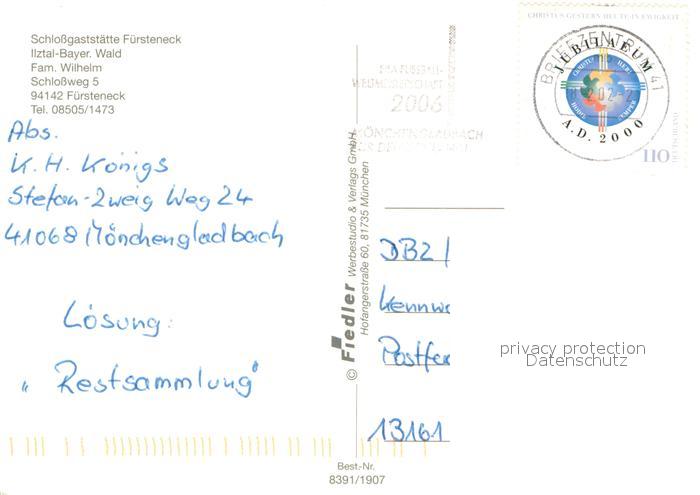 Schloßgaststätte Fürsteneck
Ilztal-Bayer. Wald
Fam. Wilhelm
Schloßweg 5
94142 Fürsteneck
Tel. 08505/1473
Abs.
K. H. Königs
Stefan-Zweig Weg 24
41068 Mönchengladbach
Lösung:
„Restsammlung"
© Fiedler Werbestudio & Verlags GmbH
Hofangerstraße 60, 81735 München
Best.-Nr.
8391/1907
CHRISTUS GESTERN HEUTE IN EWIGKEIT
BRIEFZENTRUM 41
JUBILAEUM
A.D. 2000
110
DEUTSCHLAND
2006
MÖNCHENGLADBACH
DBZ/
Kennw
Postfac
13161
privacy protection
Datenschutz